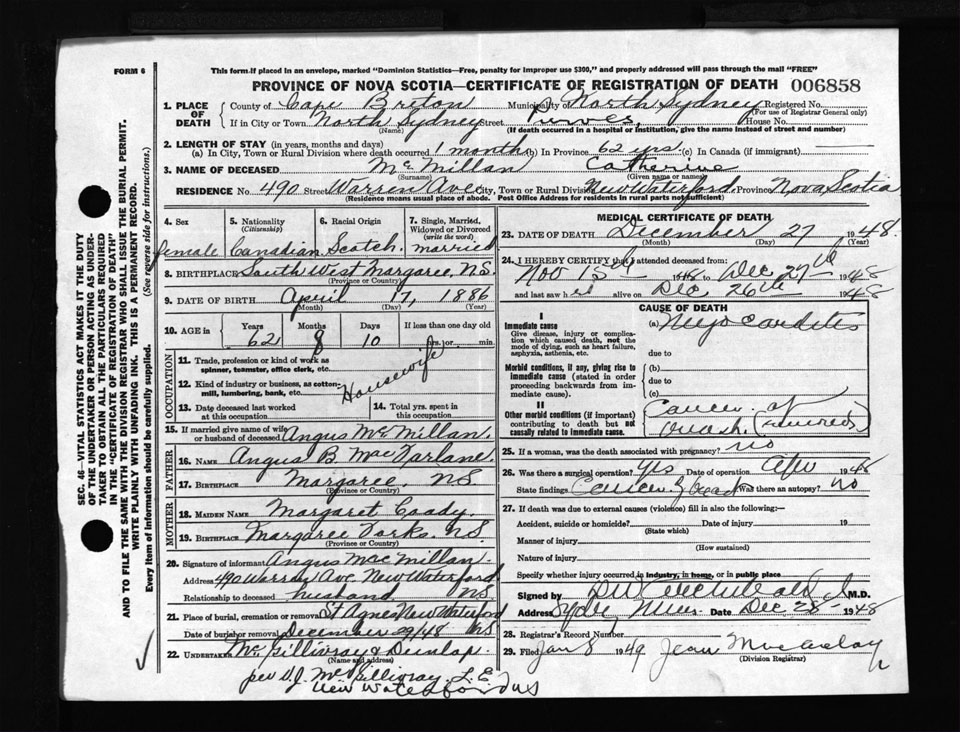 FORM 6
This form if placed in an envelope, marked "Dominion Statistics—Free, penalty for improper use $300," and properly addressed will pass through the mail "FREE"
PROVINCE OF NOVA SCOTIA—CERTIFICATE OF REGISTRATION OF DEATH 006858
1. PLACE OF DEATH
County of Cape Breton Municipality of North Sydney Registered No.
(For use of Registrar General only)
If in City or Town North Sydney Street House No.
(Name) (If death occurred in a hospital or institution, give the name instead of street and number)
2. LENGTH OF STAY (in years, months and days)
(a) In City, Town or Rural Division where death occurred 1 month (b) In Province 62 yrs (c) In Canada (if immigrant)
3. NAME OF DECEASED McMillan Catherine
(Surname) (Given name or names)
RESIDENCE No. 490 Street Warren Ave City, Town or Rural Division New Waterford Province Nova Scotia
(Residence means usual place of abode. Post Office Address for residents in rural parts not sufficient)
4. Sex
female
5. Nationality (Citizenship)
Canadian
6. Racial Origin
Scotch
7. Single, Married, Widowed or Divorced (write the word)
married
8. BIRTHPLACE South West Margaree, N.S.
(Province or Country)
9. DATE OF BIRTH April 17, 1886
(Month) (Day) (Year)
10. AGE in Years Months Days If less than one day old
62 8 10 hrs. or min.
OCCUPATION
11. Trade, profession or kind of work as spinner, teamster, office clerk, etc.
Housewife
12. Kind of industry or business, as cotton-mill, lumbering, bank, etc.
13. Date deceased last worked at this occupation
14. Total yrs. spent in this occupation
15. If married give name of wife or husband of deceased Angus McMillan.
FATHER
16. NAME Angus B. MacFarlane
17. BIRTHPLACE Margaree, N.S.
(Province or Country)
MOTHER
18. MAIDEN NAME Margaret Coady
19. BIRTHPLACE Margaree Forks. N.S.
(Province or Country)
20. Signature of informant Angus MacMillan
Address 490 Warren Ave New Waterford
Relationship to deceased husband N.S.
21. Place of burial, cremation or removal St Agnes New Waterford
Date of burial or removal December 29/48 N.S.
22. UNDERTAKER McGillivray & Dunlap
(Name and address)
per D.J. McGillivray, L.E.
New Waterford N.S.
MEDICAL CERTIFICATE OF DEATH
23. DATE OF DEATH December 27 1948
(Month) (Day) (Year)
24. I HEREBY CERTIFY that I attended deceased from:
Nov 15th 1948 to Dec 27th 1948
and last saw her alive on Dec 26th 1948
CAUSE OF DEATH
I
Immediate cause
Give disease, injury or complication which caused death, not the mode of dying, such as heart failure, asphyxia, asthenia, etc.
(a) Myocarditis
due to
Morbid conditions, if any, giving rise to immediate cause (stated in order proceeding backwards from immediate cause).
(b)
due to
(c)
II
Other morbid conditions (if important) contributing to death but not causally related to immediate cause.
Cancer of
breast (removed)
25. If a woman, was the death associated with pregnancy? no
26. Was there a surgical operation? Yes Date of operation Apr 1948
State findings Cancer of breast Was there an autopsy? no
27. If death was due to external causes (violence) fill in also the following:—
Accident, suicide or homicide? Date of injury 19
(State which)
Manner of injury
(How sustained)
Nature of injury
Specify whether injury occurred in industry, in home, or in public place
Signed by M.D.
Address Sydney Mines Date Dec 28 1948
28. Registrar's Record Number
29. Filed Jan 8 1949 Jean
(Division Registrar)
SEC. 46 - VITAL STATISTICS ACT MAKES IT THE DUTY
OF THE UNDERTAKER OR PERSON ACTING AS UNDER-
TAKER TO OBTAIN ALL THE PARTICULARS REQUIRED
IN THE "CERTIFICATE OF REGISTRATION OF DEATH"
AND TO FILE THE SAME WITH THE DIVISION REGISTRAR WHO SHALL ISSUE THE BURIAL PERMIT.
WRITE PLAINLY WITH UNFADING INK. THIS IS A PERMANENT RECORD.
Every item of information should be carefully supplied. (See reverse side for instructions.)